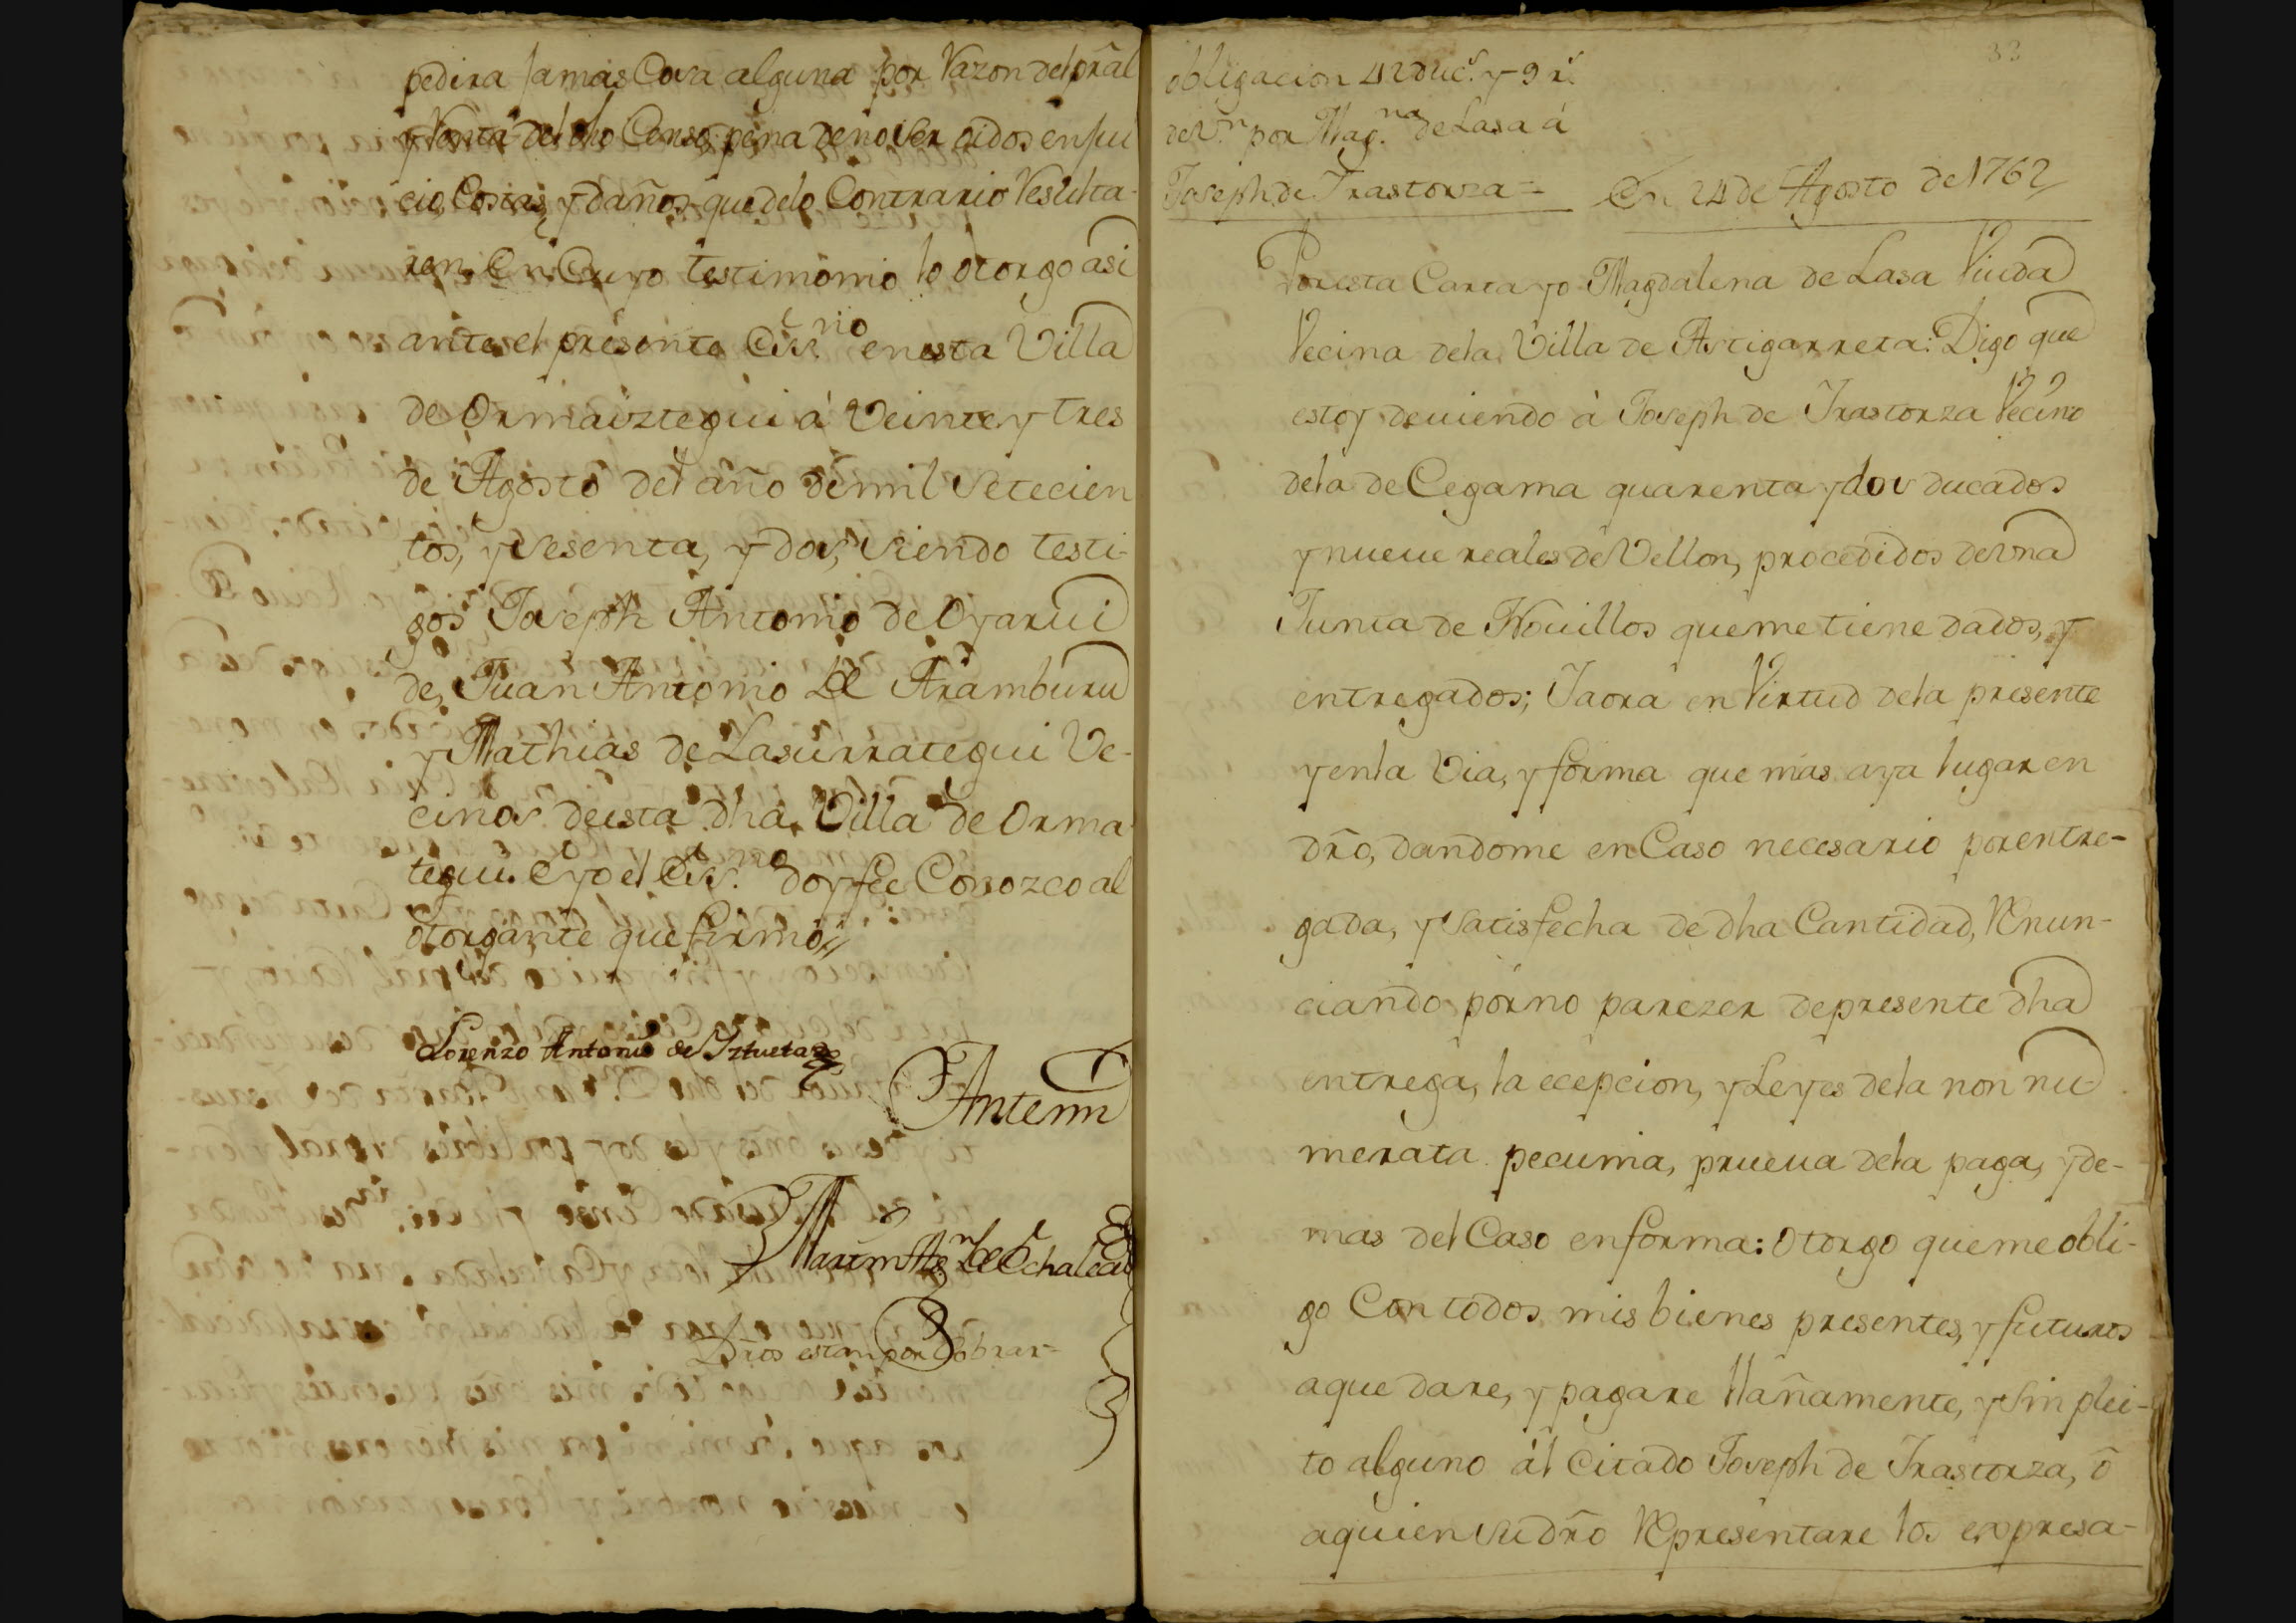 pedira Jamas Cosa alguna por Razon del pr̃al
y Renta del dho Censo pena de no ser oidos en jui
cio, Costas, y daños que delo Contrario Resulta-
ren. En Cuyo testimonio lo otorgo asi
ante el presente Essno en esta Villa
de Ormaiztegui á Veinte y tres
de Agosto del año de mil Setecien
tos, y Sesenta, y dos, siendo testi-
gos Joseph Antonio de Oyarvi
de, Juan Antonio de Aramburu
y Mathias de Lasurrategui Ve-
cinos de esta dha Villa de Orma
tegui. E yo el Essno doy fee Conozco al
otorgante que firmó
Lorenzo Antonio de Yztueta
Antemi
Martin Anº de Echaleau
Dr̃os estan por Cobrar=
33
obligacion 42 ducs. y 9 rs.
de Vn por Magna de Lasa á
Joseph de Irastorza =
En 24 de Agosto de 1762
Por esta Carta yo Magdalena de Lasa Viuda
Vecina dela Villa de Astigarreta: Digo que
estoy deviendo à Joseph de Irastorza Vecino
dela de Cegama quarenta y dos ducados
y nueue reales de Vellon, procedidos de Vna
Junta de Nouillos que me tiene dados, y
entregados; Iaora en Virtud dela presente
y enla Via, y forma que mas aya lugar en
dr̃o, dandome en Caso necesario por entre-
gada, y Satisfecha de dha Cantidad, Renun-
ciando por no parezer de presente dha
entrega, la ecepcion, y Leyes dela non nu
merata pecunia, prueua dela paga, y de-
mas del Caso en forma: otorgo que me obli-
go Con todos mis bienes presentes, y futuros
aque dare, y pagare llañamente, y Sin plei-
to alguno ál Citado Joseph de Irastorza, ô
aquien Su dr̃o Representare los expresa-